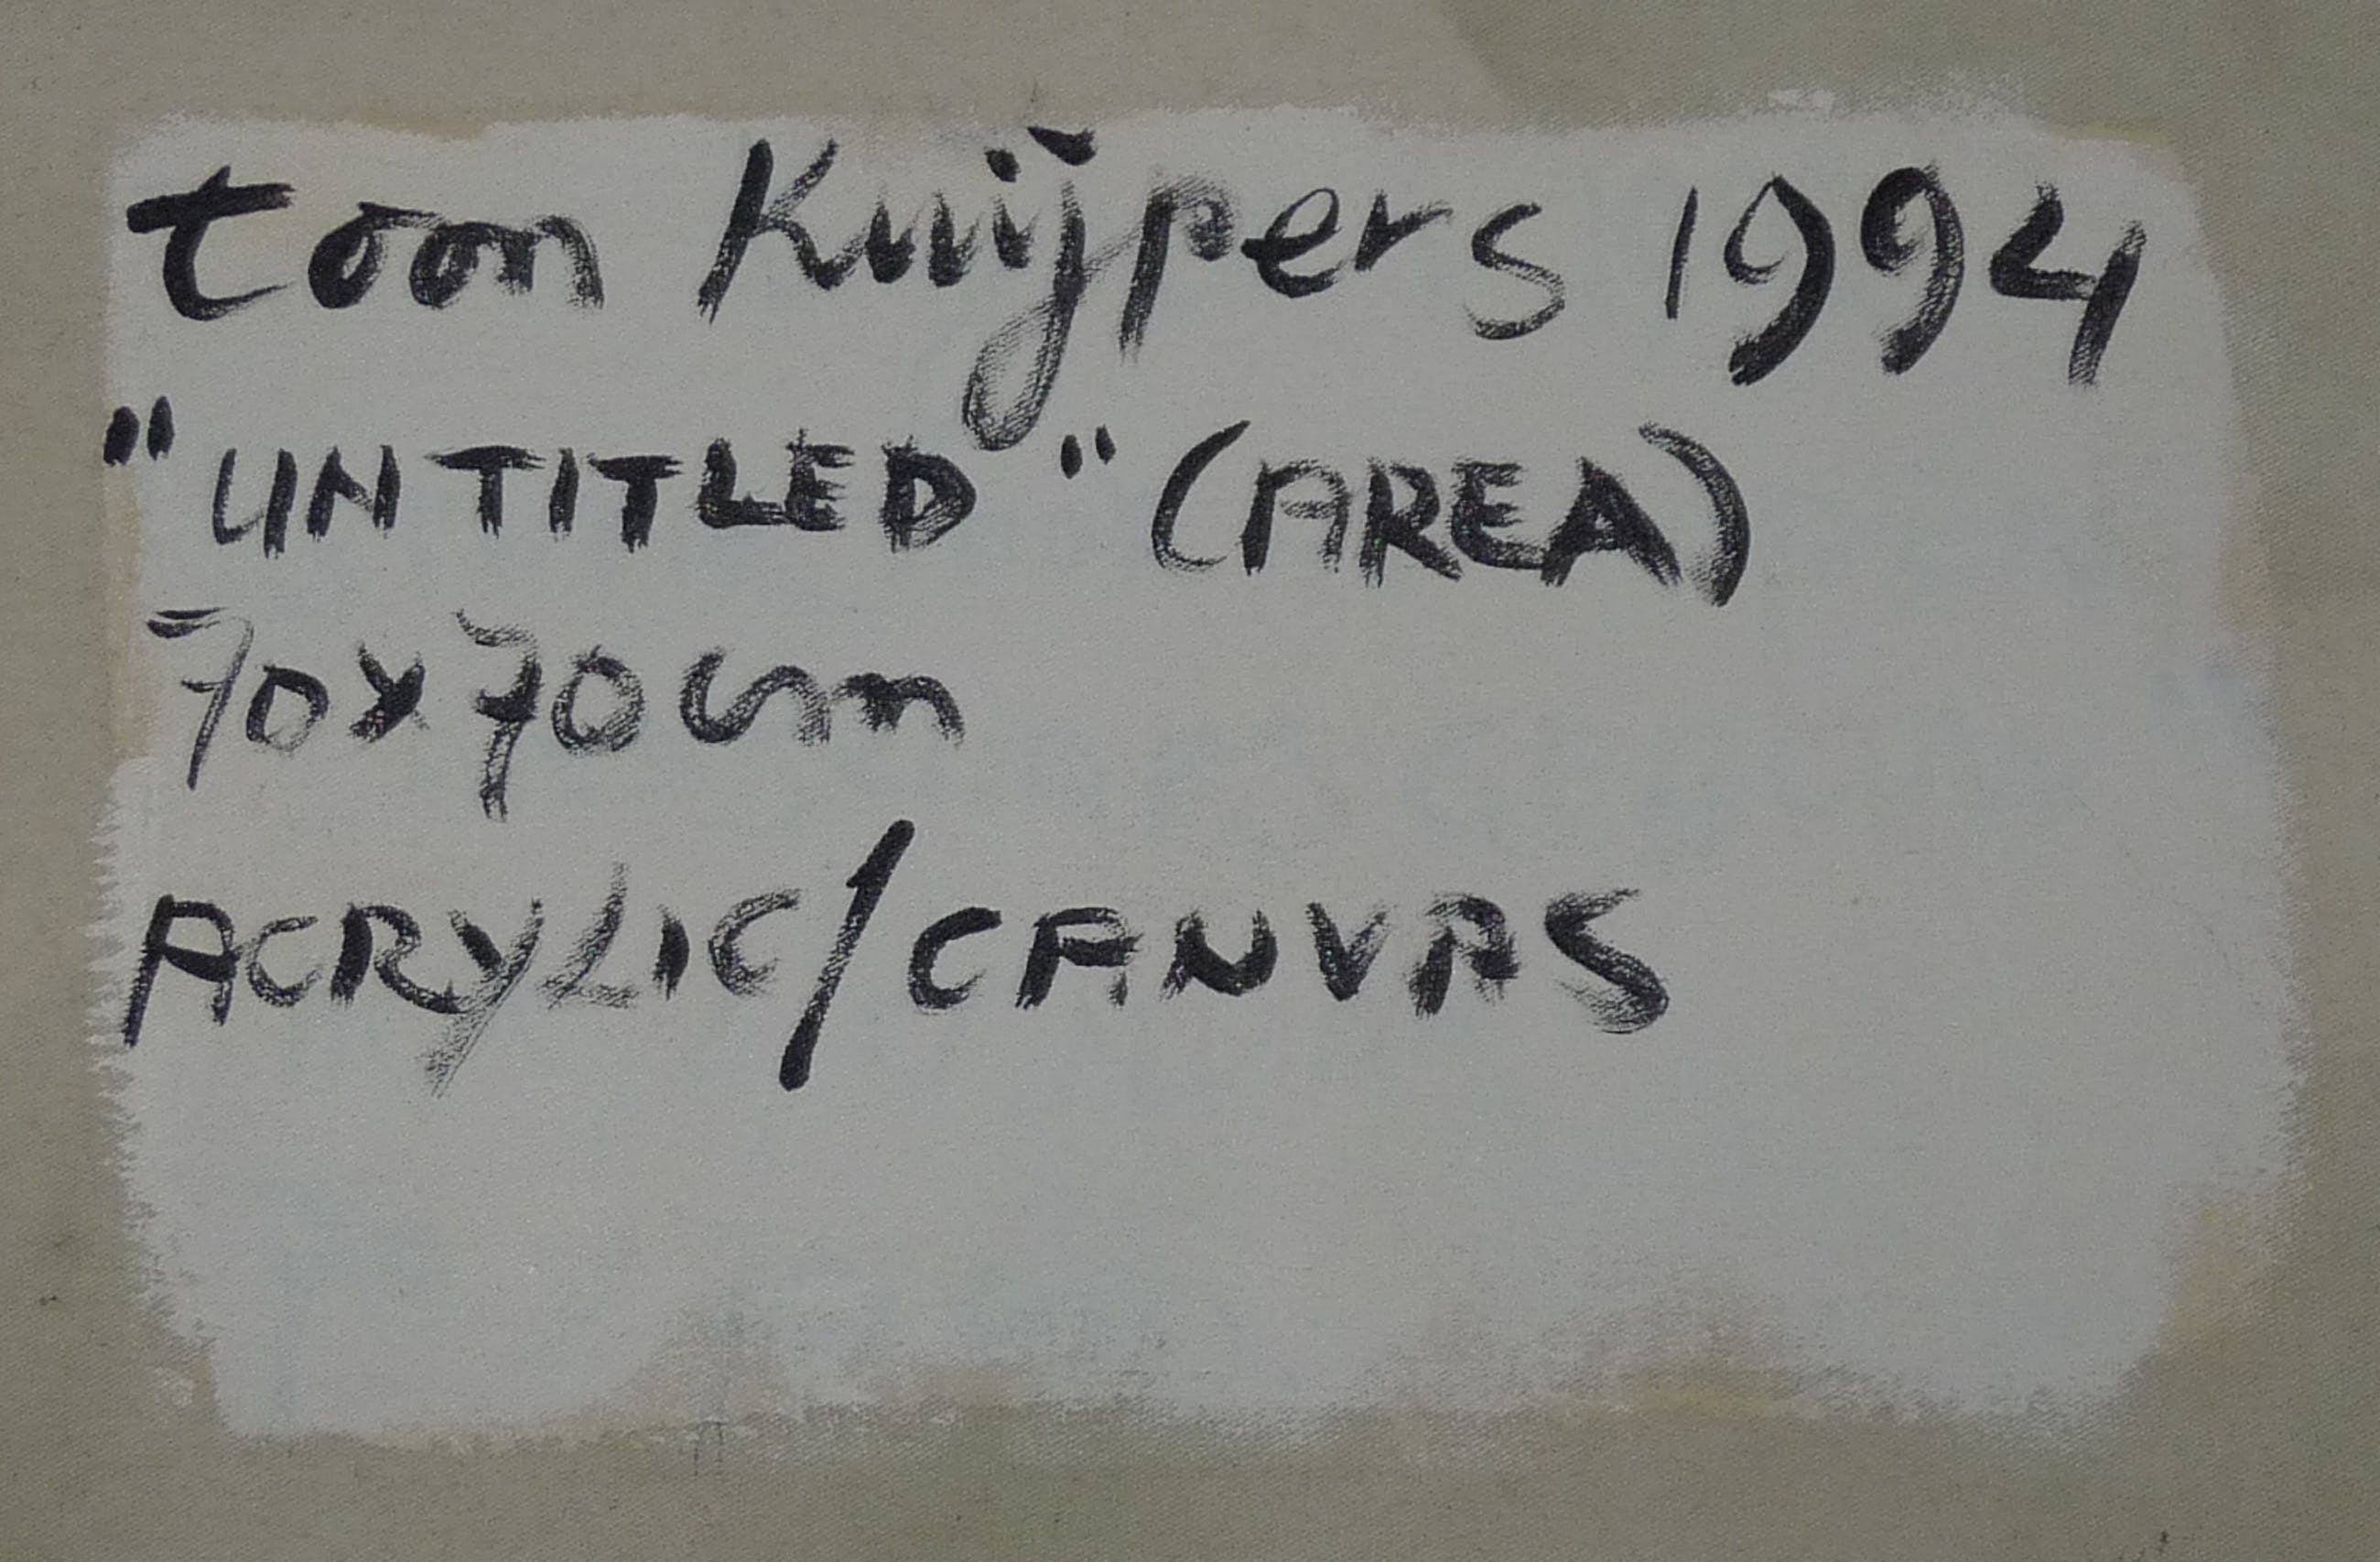 toon Kuijpers 1994
"UNTITLED" (AREA)
70x70cm
ACRYLIC/CANVAS